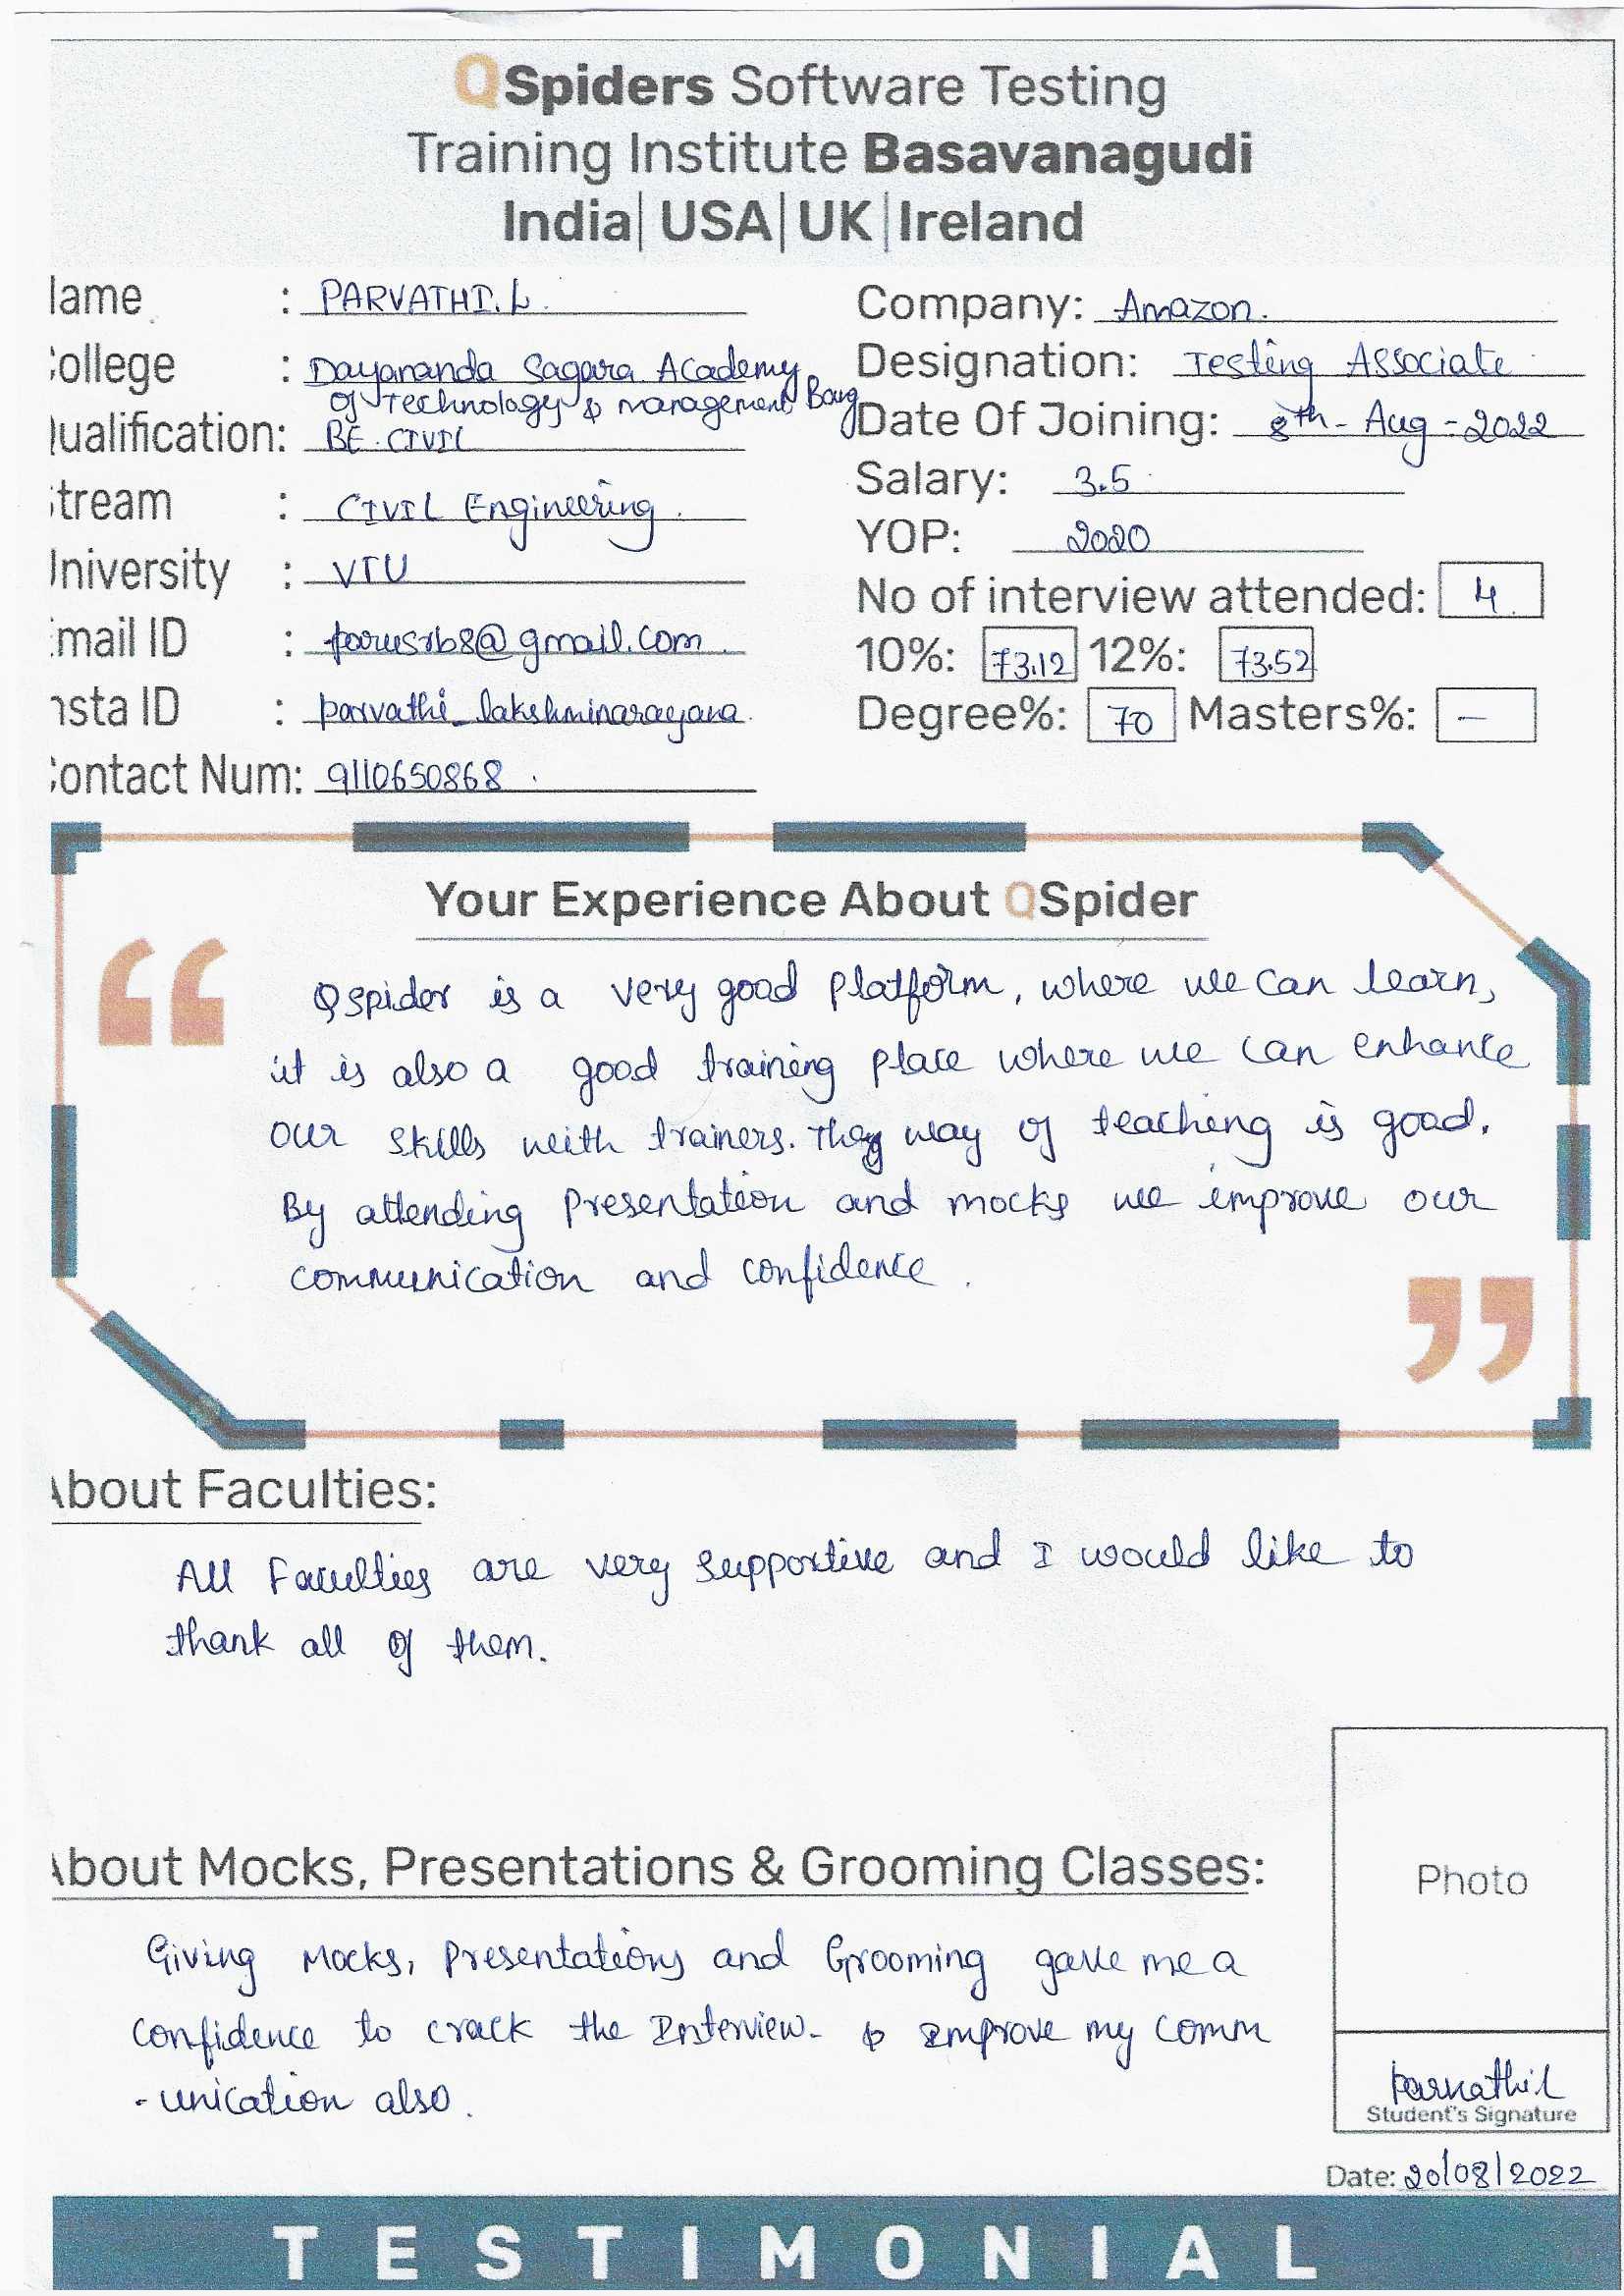 QSpiders Software Testing
Training Institute Basavanagudi
India| USA| UK| Ireland
lame : PARVATHI.L.
ollege : Dayananda Sagara Academy
of Technology & management, Bang
ualification: BE. CIVIL
tream : CIVIL Engineering.
niversity : VTU
mail ID : @gmail.com.
nsta ID : parvathi_lakshminarayana.
ontact Num: 9110650868.
Company: Amazon.
Designation: Testing Associate
Date Of Joining: 8th- Aug - 2022
Salary: 3.5
YOP: 2020
No of interview attended: 4
10%: 73.12 12%: 73.52
Degree%: 70 Masters%: —
Your Experience About QSpider
“
Qspider is a very good platform, where we can learn,
it is also a good training place where we can enhance
our skills with trainers. They way of teaching is good.
By attending presentation and mocks we improve our
communication and confidence.
”
bout Faculties:
All Faculties are very supportive and I would like to
thank all of them.
bout Mocks, Presentations & Grooming Classes:
Giving Mocks, Presentations and Grooming gave me a
confidence to crack the Interview- & Improve my comm
-unication also.
Photo
Parvathi L
Student's Signature
Date: 20/08/2022
TESTIMONIAL